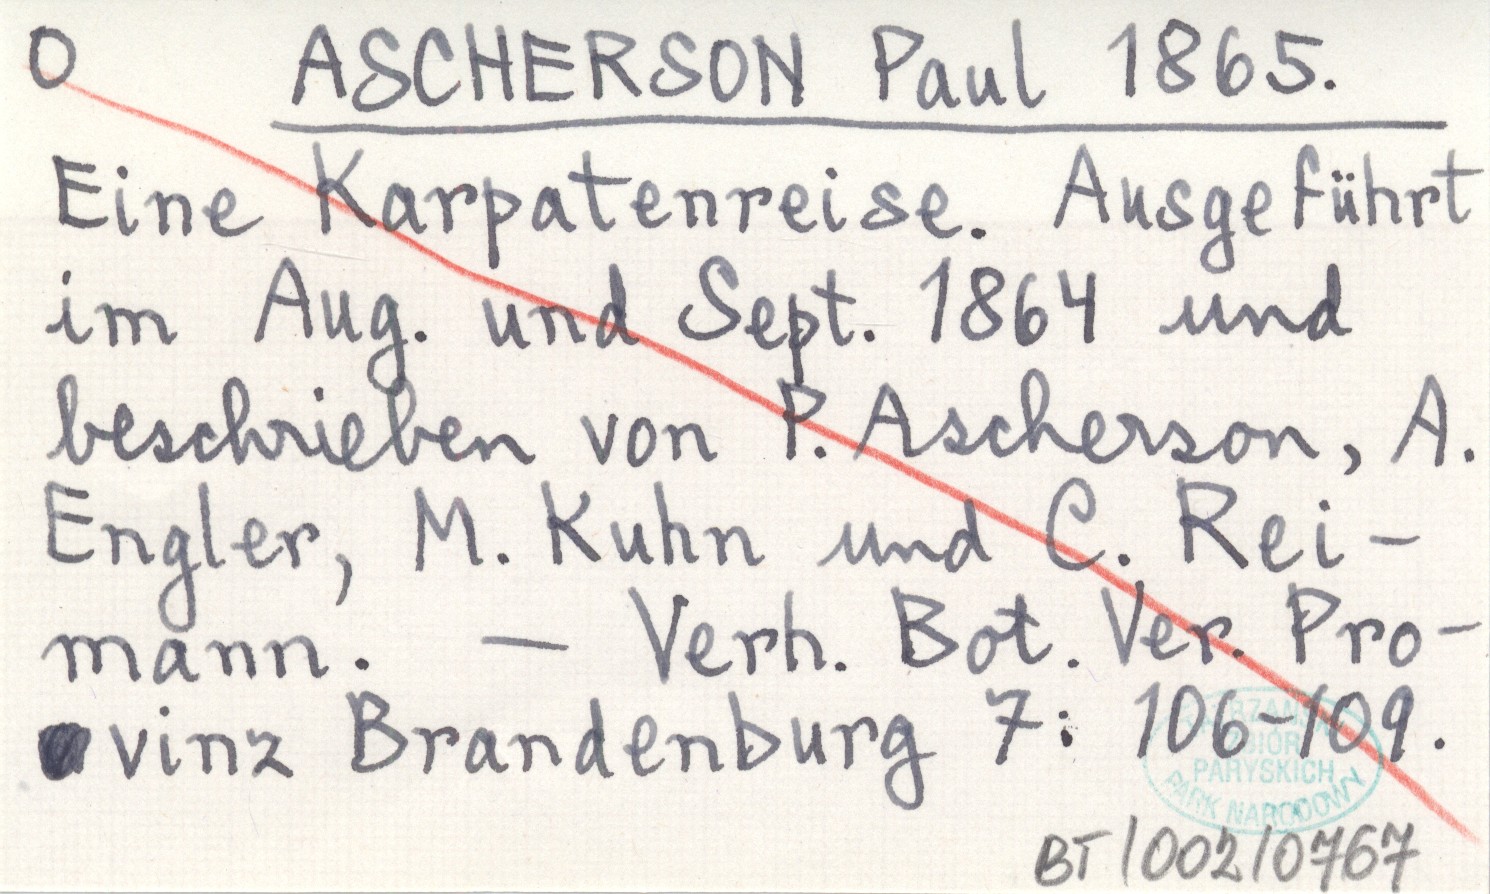 O ASCHERSON Paul 1865.
Eine Karpatenreise. Ausgeführt
im Aug. und Sept. 1864 und
beschrieben von P. Ascherson, A.
Engler, M. Kuhn und C. Rei-
mann. — Verh. Bot. Ver. Pro-
vinz Brandenburg 7: 106-109.
TATRZAŃSKI
ZBIÓR
PARYSKICH
PARK NARODOWY
BT/002/0767